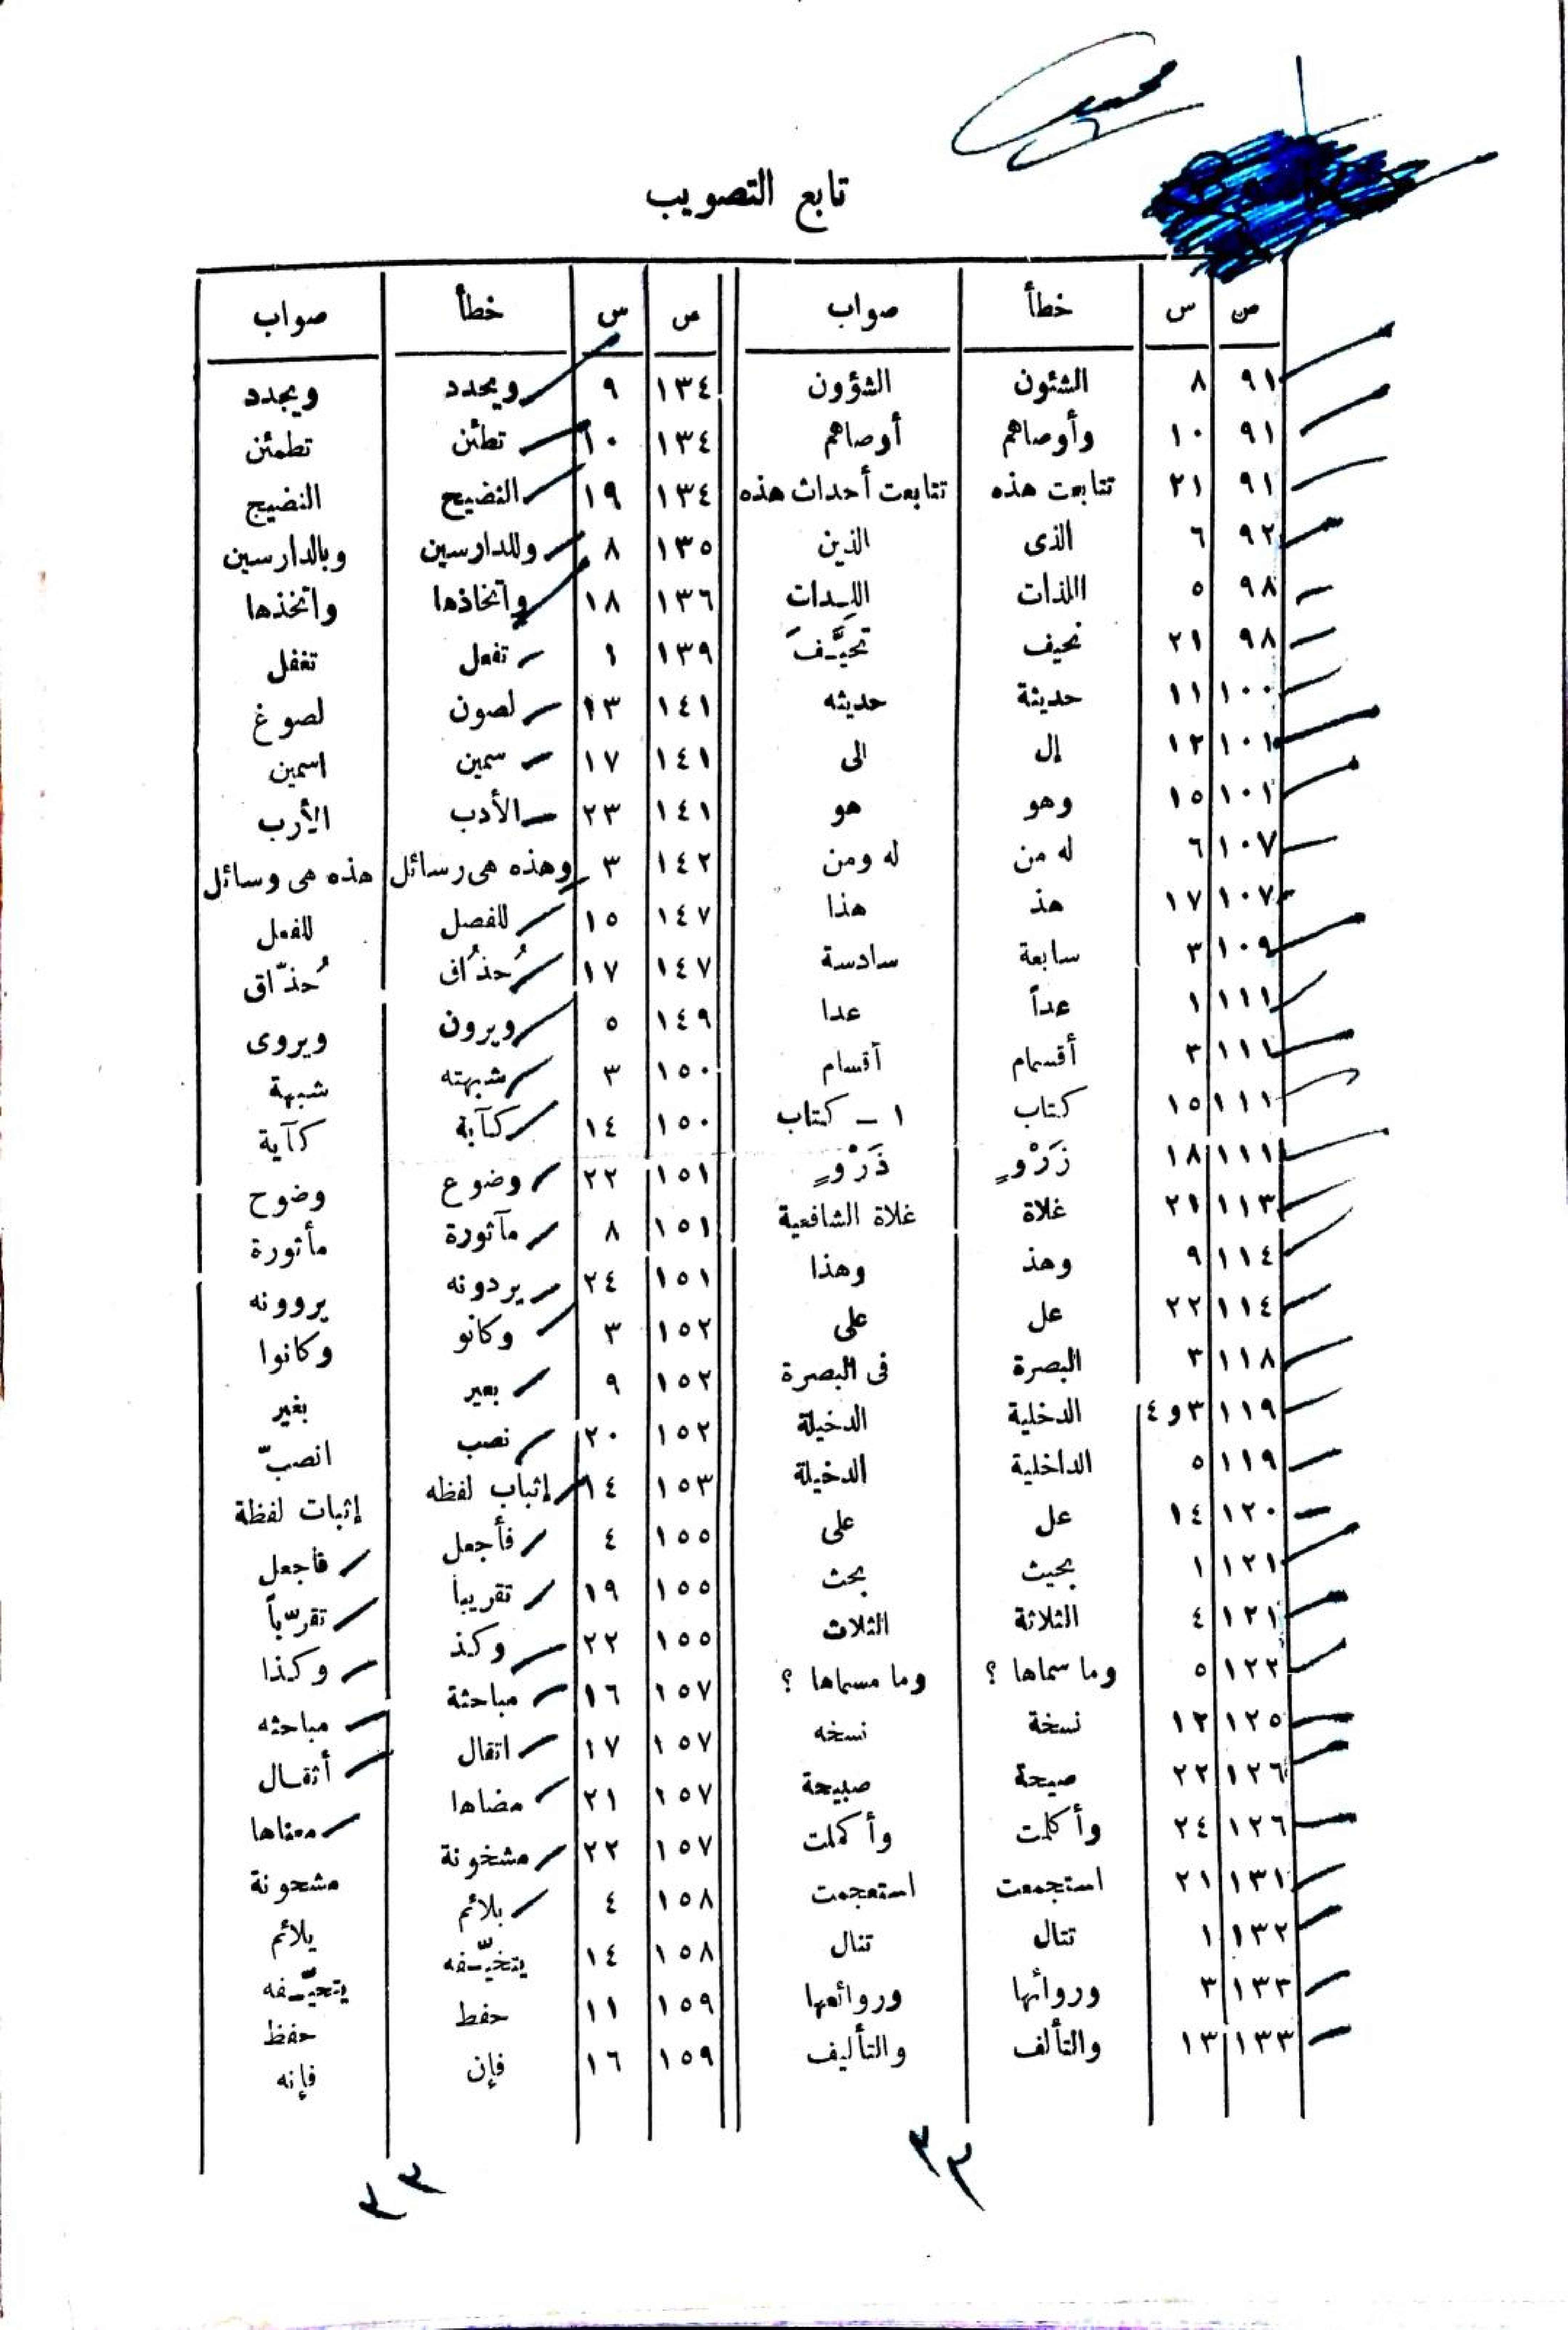 تابع التصويب
ص س خطأ صواب
٩١ ٨ الشئون الشؤون
٩١ ١٠ وأوصاهم أوصاهم
٩١ ٢١ تتابعت هذه تتابعت أحداث هذه
٩٢ ٦ الذى الذين
٩٨ ٥ اللذات اللِّدات
٩٨ ٢١ نحيف تحيَّفَ
١٠٠ ١١ حديثة حديثه
١٠١ ١٢ إل الى
١٠١ ١٥ وهو هو
١٠٧ ٦ له من له ومن
١٠٧ ١٧ هذ هذا
١٠٩ ٣ سابعة سادسة
١١١ ١ عداً عدا
١١١ ٣ أقسمام أقسام
١١١ ١٥ كتاب ١ – كتاب
١١١ ١٨ زَرْوٍ ذَرْوٍ
١١٣ ٢١ غلاة غلاة الشافعية
١١٤ ٩ وهذ وهذا
١١٤ ٢٢ عل على
١١٨ ٣ البصرة فى البصرة
١١٩ ٣و٤ الدخلية الدخيلة
١١٩ ٥ الداخلية الدخيلة
١٢٠ ١٤ عل على
١٢١ ١ بحيث بحث
١٢١ ٤ الثلاثة الثلاث
١٢٢ ٥ وما سماها ؟ وما مسماها ؟
١٢٥ ١٢ نسخة نسخه
١٢٦ ٢٢ صيحة صبيحة
١٢٦ ٢٤ وأكلمت وأكملت
١٣١ ٢١ استجمعت استعجمت
١٣٢ ١ تتال تنال
١٣٣ ٣ وروائها وروائعها
١٣٣ ١٣ والتألف والتأليف
ص س خطأ صواب
١٣٤ ٩ ويحدد ويجدد
١٣٤ ١٠ تطئن تطمئن
١٣٤ ١٩ النضيح النضيج
١٣٥ ٨ وللدارسين وبالدارسين
١٣٦ ١٨ واتخاذها واتخذها
١٣٩ ١ تفعل تغفل
١٤١ ١٣ لصون لصوغ
١٤١ ١٧ سمين اسمين
١٤١ ٢٣ الأدب الأرب
١٤٢ ٣ وهذه هى رسائل هذه هى وسائل
١٤٧ ١٥ للفصل للفعل
١٤٧ ١٧ حُذُاق حُذّاق
١٤٩ ٥ ويرون ويروى
١٥٠ ٣ شبهته شبهة
١٥٠ ١٤ كآبة كآية
١٥١ ٢٢ وضوع وضوح
١٥١ ٨ مآثورة مأثورة
١٥١ ٢٤ يردونه يروونه
١٥٢ ٣ وكانو وكانوا
١٥٢ ٩ بعير بغير
١٥٢ ٢٠ نصب انصبّ
١٥٣ ١٤ إثباب لفظه إثبات لفظة
١٥٥ ٤ فأجعل فاجعل
١٥٥ ١٩ تقريبا تقرّباً
١٥٥ ٢٢ وكذ وكذا
١٥٧ ١٦ مباحثة مباحثه
١٥٧ ١٧ اتقال أثقال
١٥٧ ٢١ مضاها معناها
١٥٧ ٢٢ مشخونة مشحونة
١٥٨ ٤ بلائم يلائم
١٥٨ ١٤ يتخيّفه يتحيّفه
١٥٩ ١١ حفط حفظ
١٥٩ ١٦ فإن فإنه
٣٣
٣٣